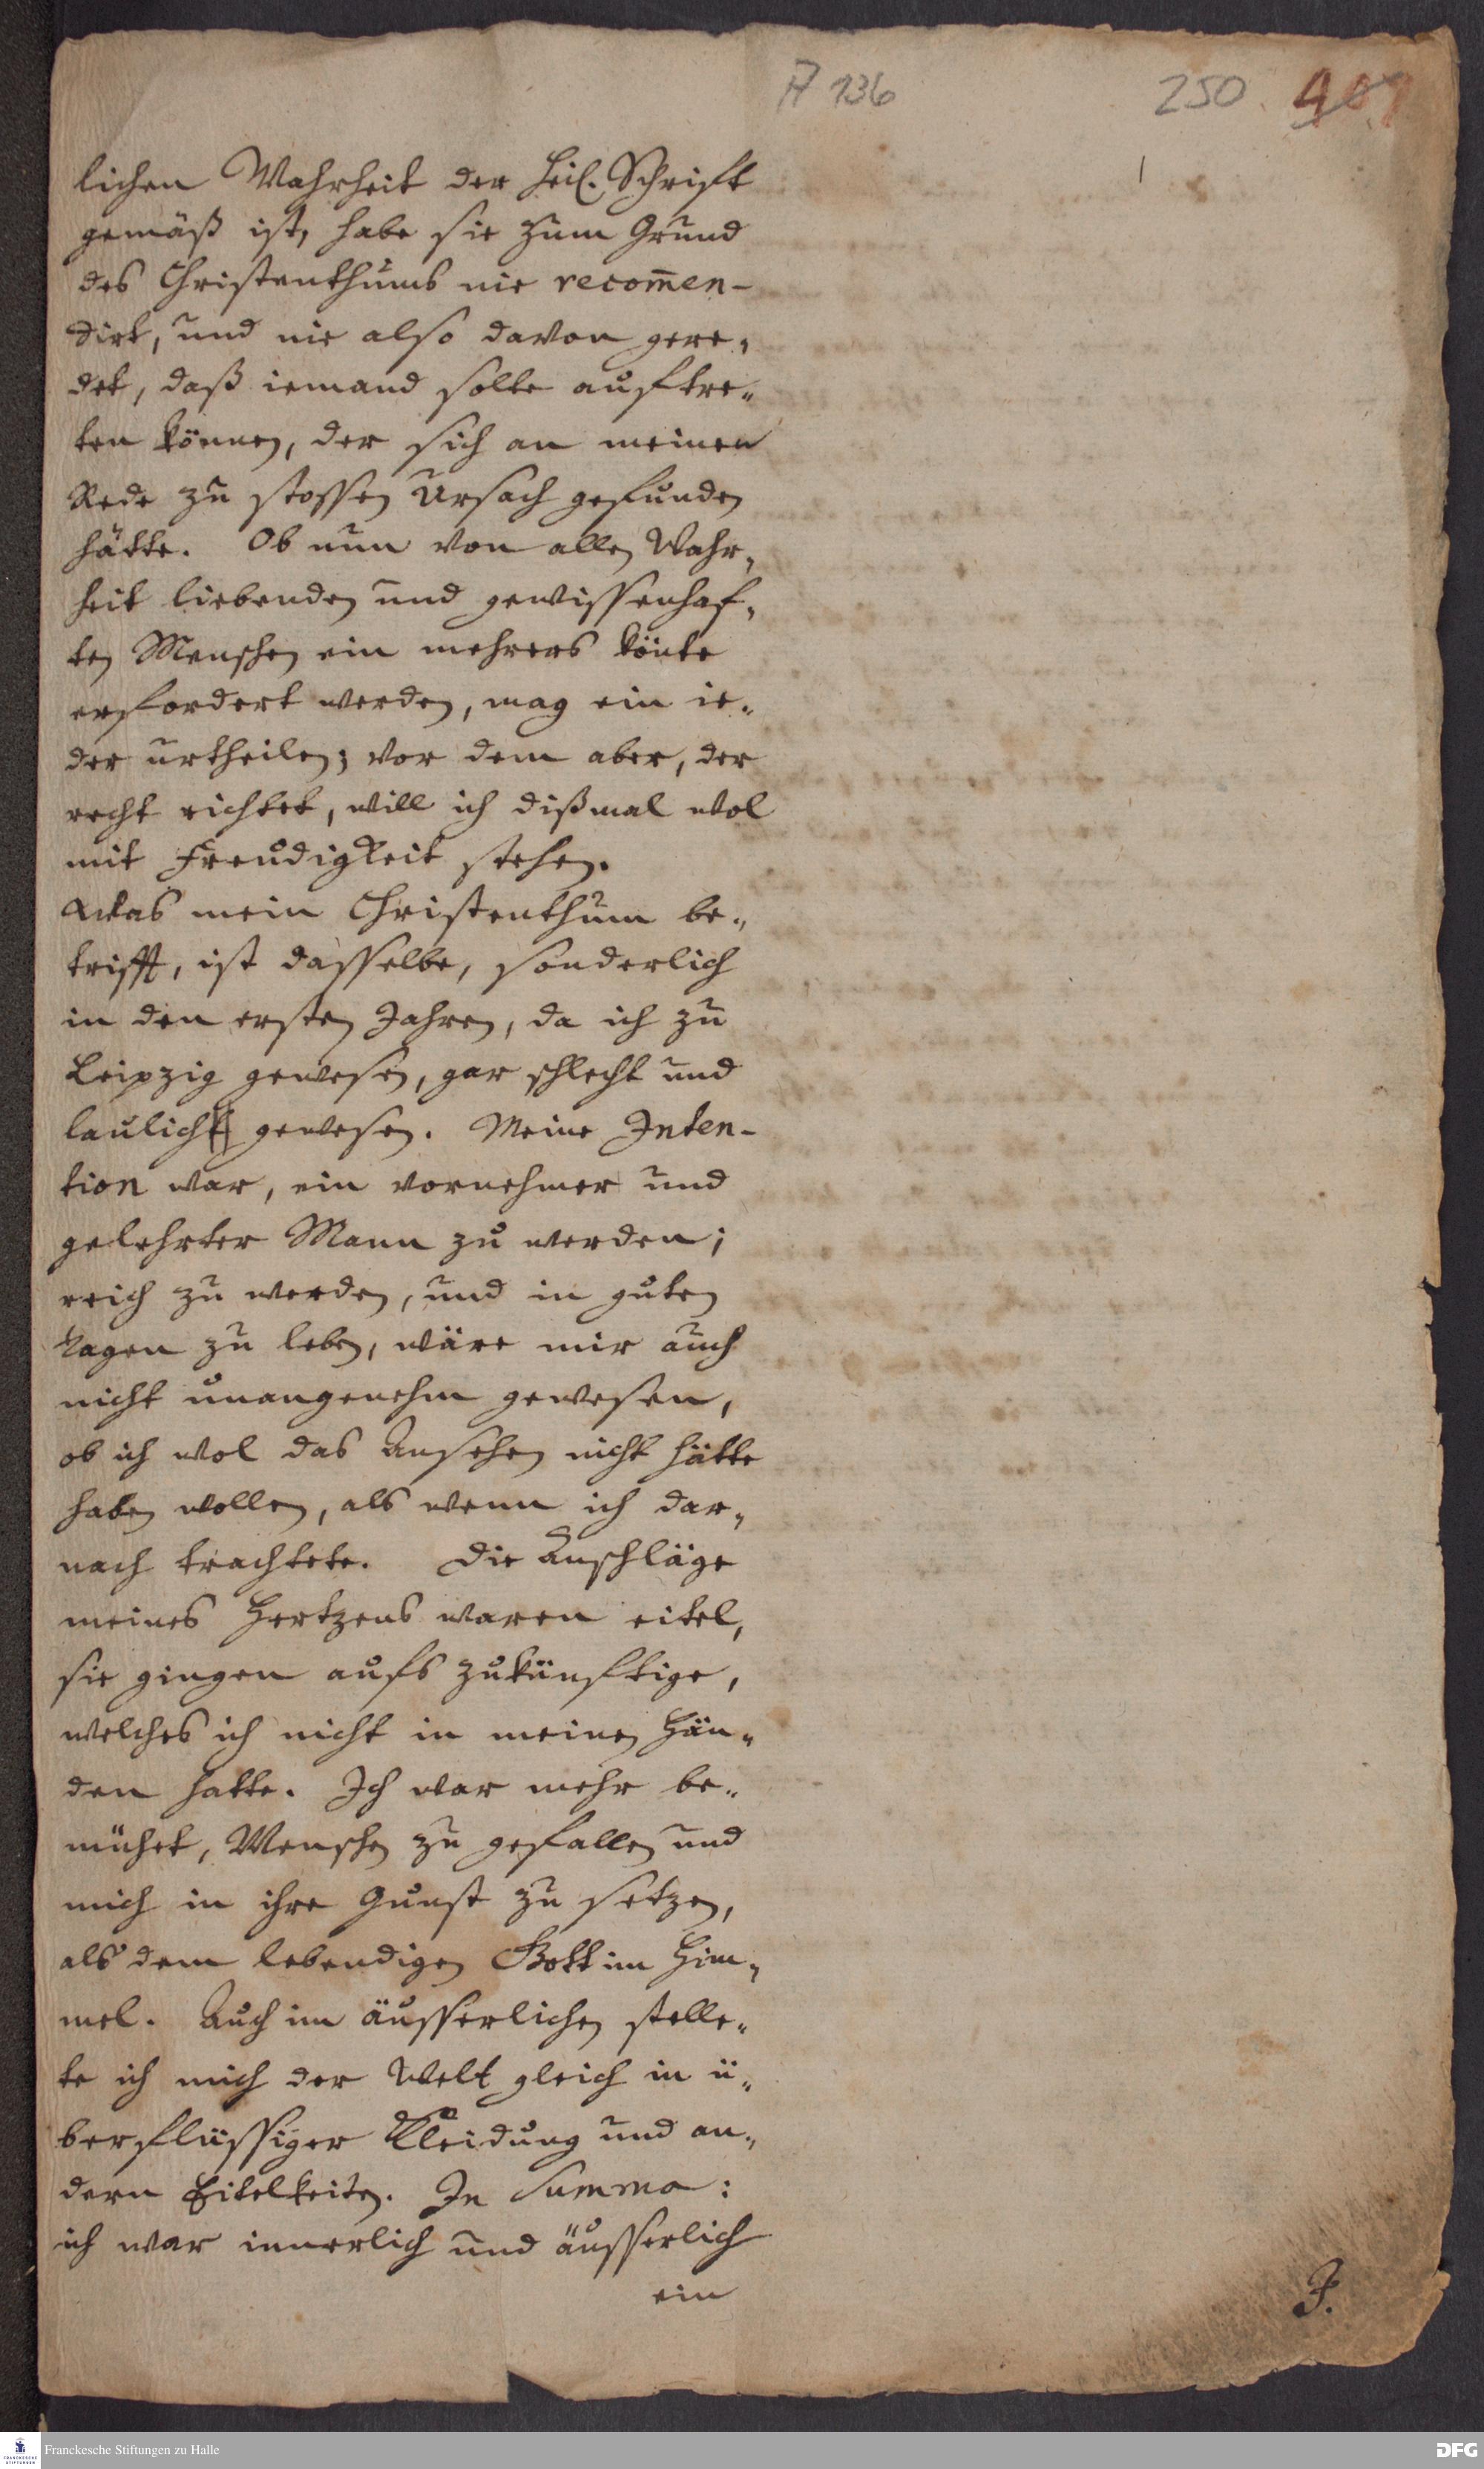 A 136
250 409
lichen Wahrheit der heil. Schrifft
gemäß ist, habe sie zum Grund
des Christenthums nie recom̃en-
dirt, und nie also davon gere-
det, daß iemand solte auftre-
ten können, der sich an meiner
Rede zu stossen Ursach gefunden
hätte. Ob nun von allen Wahr-
heit liebenden und gewissenhaf-
ten Menschen ein mehrers könte
erfordert werden, mag ein ie-
der urtheilen; vor dem aber, der
recht richtet, will ich dißmal wol
mit Freudigkeit stehen.
Was mein Christenthum be-
trifft, ist dasselbe, sonderlich
in den ersten Jahren, da ich zu
Leipzig gewesen, gar schlecht und
laulicht gewesen. Meine Inten-
tion war, ein vornehmer und
gelehrter Mann zu werden;
reich zu werden, und in guten
Tagen zu leben, wäre mir auch
nicht unangenehm gewesen,
ob ich wol das Ansehen nicht hätte
haben wollen, als wenn ich dar-
nach trachtete. Die Anschläge
meines Hertzens waren eitel,
sie gingen aufs zukünftige,
welches ich nicht in meinen Hän-
den hatte. Ich war mehr be-
mühet, Menschen zu gefallen und
mich in ihre Gunst zu setzen,
als dem lebendigen Gott im Him-
mel. Auch im äusserlichen stelle-
te ich mich der Welt gleich in ü-
berflüssiger Kleidung und an-
dern Eitelkeiten. In Summa:
ich war innerlich und äusserlich
ein
J.
Franckesche Stiftungen zu Halle
DFG